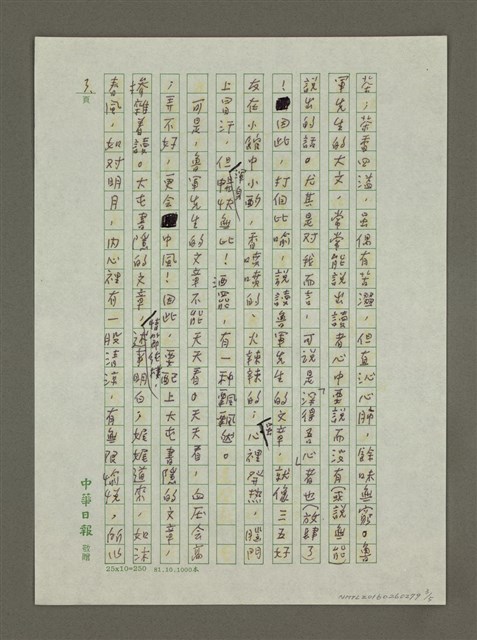 茶；茶香四溢，虽偶有苦澀，但直沁心肺，餘味無窮。魯
軍先生的大文，常常能說出讀者心中要說而沒有（或說無能）
說出的話。尤其是对我而言，可說是「深得吾心」者也（放肆了）
！因此，打個比喻，說讀魯軍先生的文章，就像三五好
友在小館中小酌，香噴噴的、火辣辣的；心裡發热，腦門
上冒汗，但渾身暢快無比！酒罷，有一种飄飄然。
可是，魯軍先生的文章不能天天看。天天看，血压会高
；弄不好，更会中風！因此，要配上大屯書隱的文章，
摻雜着讀。大屯書隱的文章，情節純樸，述事明白；娓娓道來，如沐
春風，如对明月，內心裡有一股清涼，有無限愉悅。所以
3.頁
中華日報 敬贈
25x10=250 81.10.1000本
NMTL20160260299 3/5